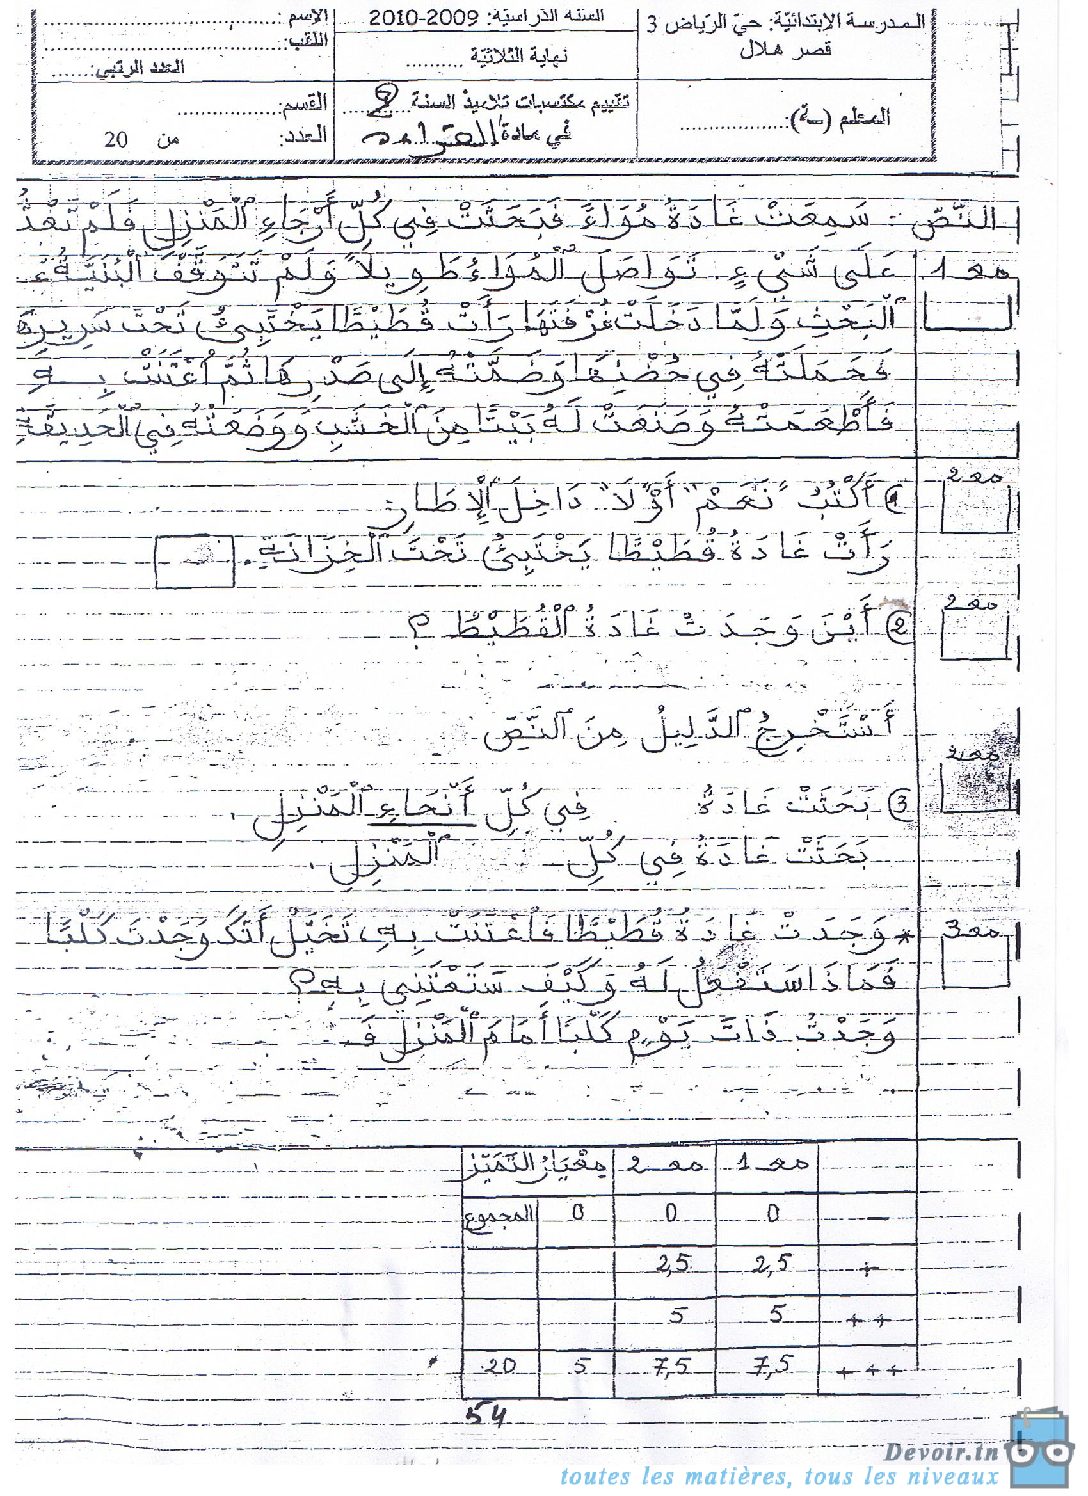 المدرسة الإبتدائيّة: حيّ الرّياض 3
قصر هلال
المعلم (ـة): ..................
السنة الدراسيّة: 2009-2010
نهاية الثلاثيّة ..........
تقييم مكتسبات تلاميذ السنة 2
في مادة القراءة
الإسم : ..................
اللقب: ..................
العدد الرتبي: ......
القسم: ..................
العدد: من 20
النَّصّ : سَمِعَتْ غَادَةُ مُوَاءً فَبَحَثَتْ فِي كُلِّ أَرْجَاءِ الْمَنْزِلِ فَلَمْ تَعْثُرْ
مع 1
عَلَى شَيْءٍ. تَوَاصَلَ الْمُوَاءُ طَوِيلاً وَلَمْ تَتَوَقَّفْ الْبُنَيَّةُ عَنِ
الْبَحْثِ وَلَمَّا دَخَلَتْ غُرْفَتَهَا رَأَتْ قُطَيْطًا يَخْتَبِئُ تَحْتَ سَرِيرِهَا
فَحَمَلَتْهُ فِي حُضْنِهَا وَضَمَّتْهُ إِلَى صَدْرِهَا ثُمَّ اعْتَنَتْ بِهِ
فَأَطْعَمَتْهُ وَصَنَعَتْ لَهُ بَيْتًا مِنَ الْخَشَبِ وَوَضَعَتْهُ فِي الْحَدِيقَةِ
مع 2
1 أَكْتُبُ "نَعَمْ" أَوْ "لَا" دَاخِلَ الْإِطَارِ
رَأَتْ غَادَةُ قُطَيْطًا يَخْتَبِئُ تَحْتَ الْخِزَانَةِ.
مع 2
2 أَيْنَ وَجَدَتْ غَادَةُ الْقُطَيْطَ ؟
أَسْتَخْرِجُ الدَّلِيلَ مِنَ النَّصِّ
مع 2
3 بَحَثَتْ غَادَةُ فِي كُلِّ أَنْحَاءِ الْمَنْزِلِ .
بَحَثَتْ غَادَةُ فِي كُلِّ الْمَنْزِلِ .
مع 3
* وَجَدَتْ غَادَةُ قُطَيْطًا فَاعْتَنَتْ بِهِ، تَخَيَّلْ أَنَّكَ وَجَدْتَ كَلْبًا
فَمَاذَا سَتَفْعَلُ لَهُ وَكَيْفَ سَتَعْتَنِي بِهِ ؟
وَجَدْتُ ذَاتَ يَوْمٍ كَلْبًا أَمَامَ الْمَنْزِلِ فَـ
مع 1 مع 2 مِعْيَارُ التَّمَيّزِ
— 0 0 0 المجموع
+ 2,5 2,5
++ 5 5
+++ 7,5 7,5 5 20
54
Devoir.tn
toutes les matières, tous les niveaux